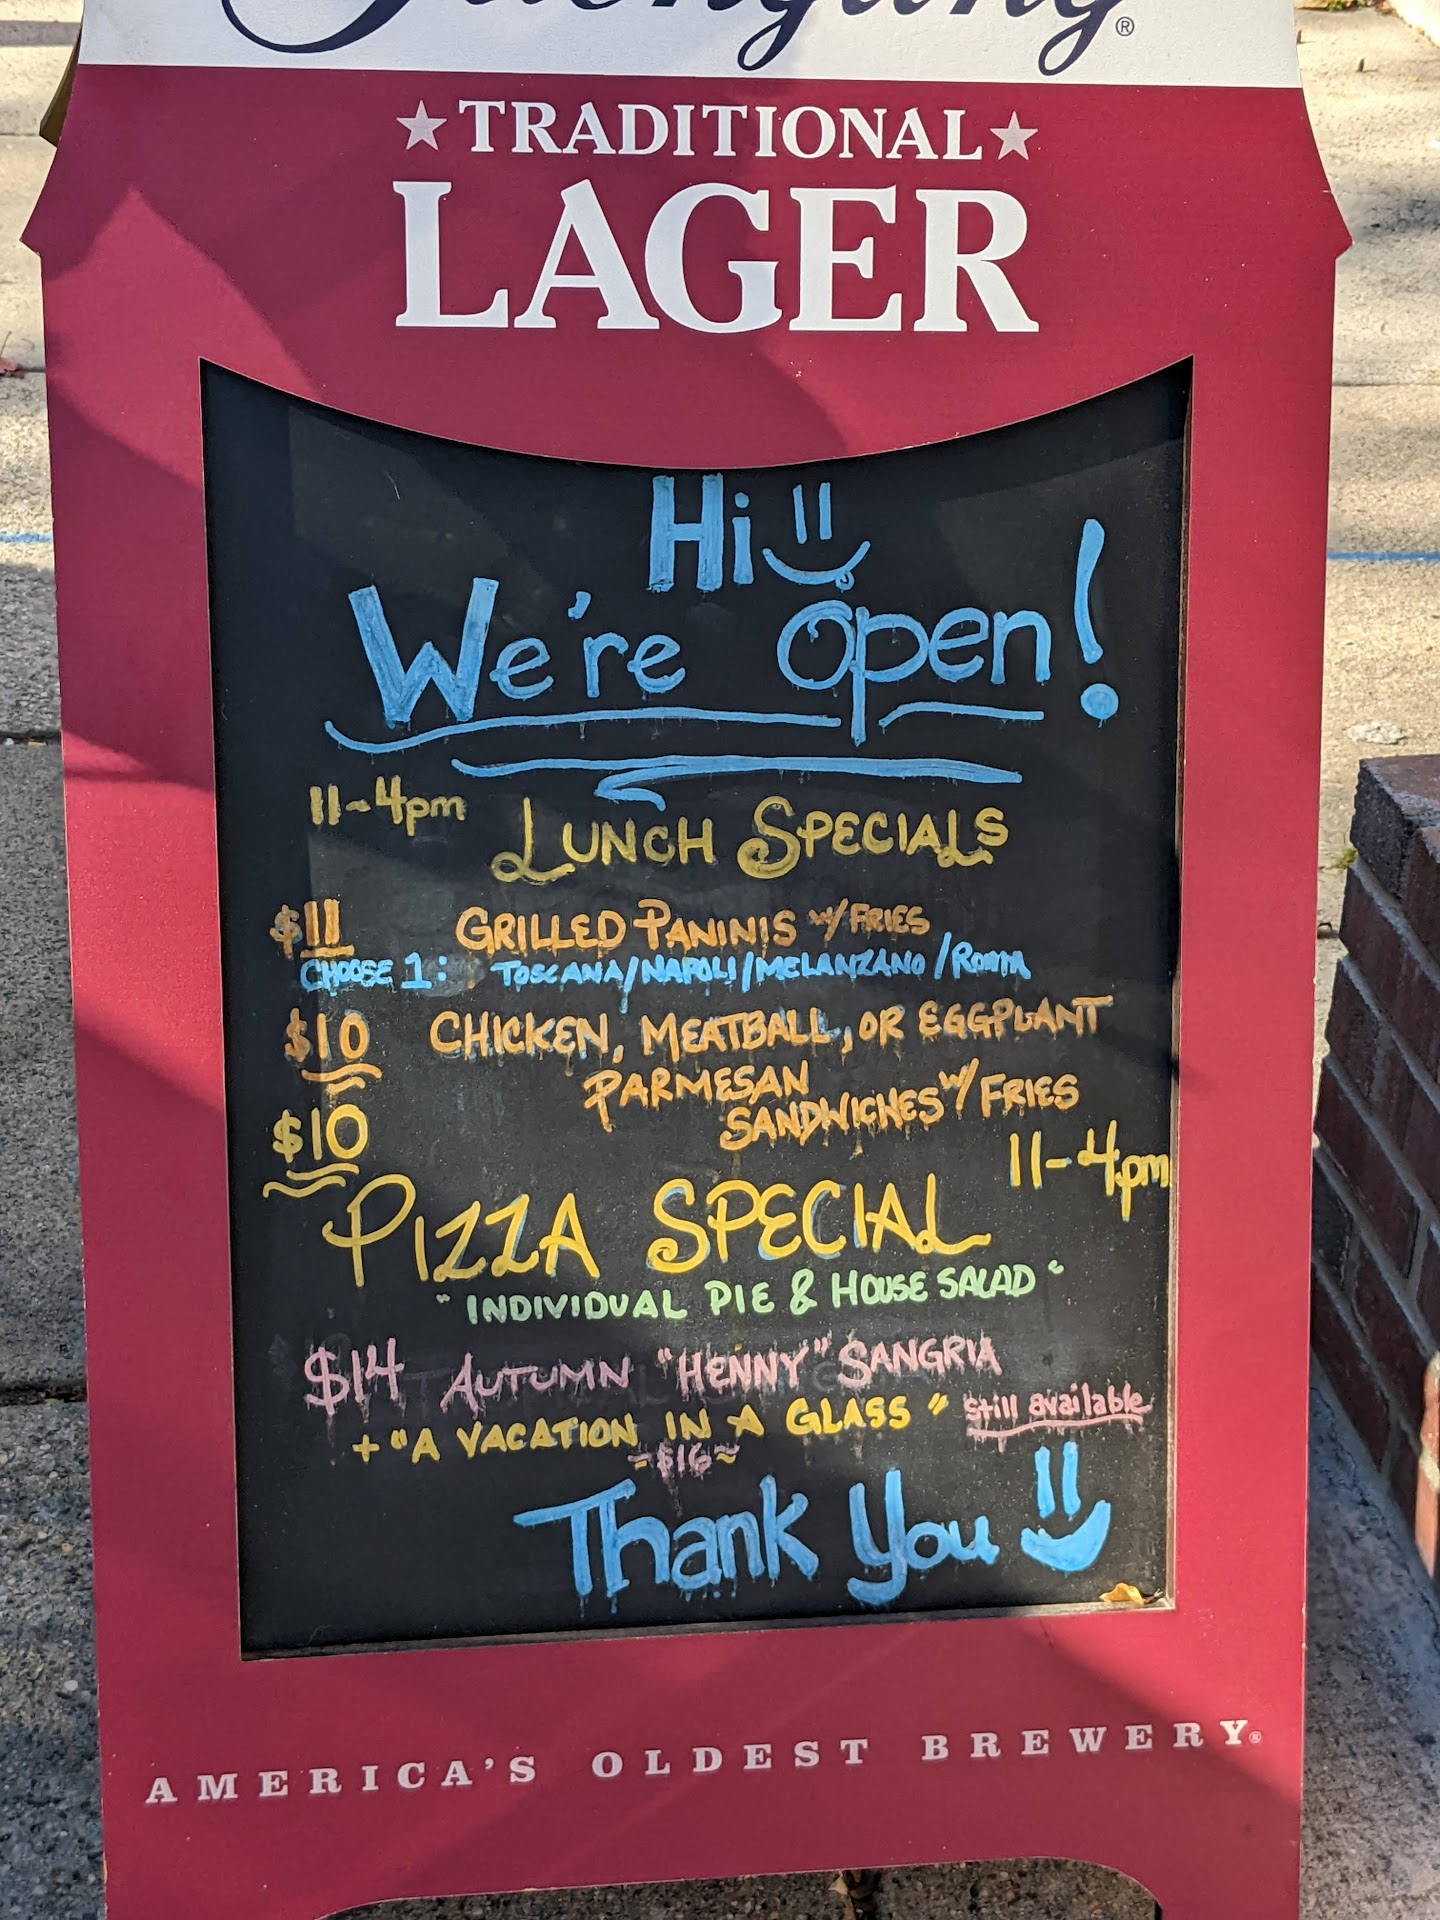 Yuengling®
TRADITIONAL
LAGER
Hi
We're open!
11-4pm LUNCH SPECIALS
$11 GRILLED PANINIS w/ FRIES
CHOOSE 1: TOSCANA/NAPOLI/MELANZANO/ROMA
$10 CHICKEN, MEATBALL, OR EGGPLANT
PARMESAN
SANDWICHES w/ FRIES
$10 11-4pm
PIZZA SPECIAL
"INDIVIDUAL PIE & HOUSE SALAD"
$14 AUTUMN "HENNY" SANGRIA
+ "A VACATION IN A GLASS" still available
~$16~
Thank You
AMERICA'S OLDEST BREWERY®